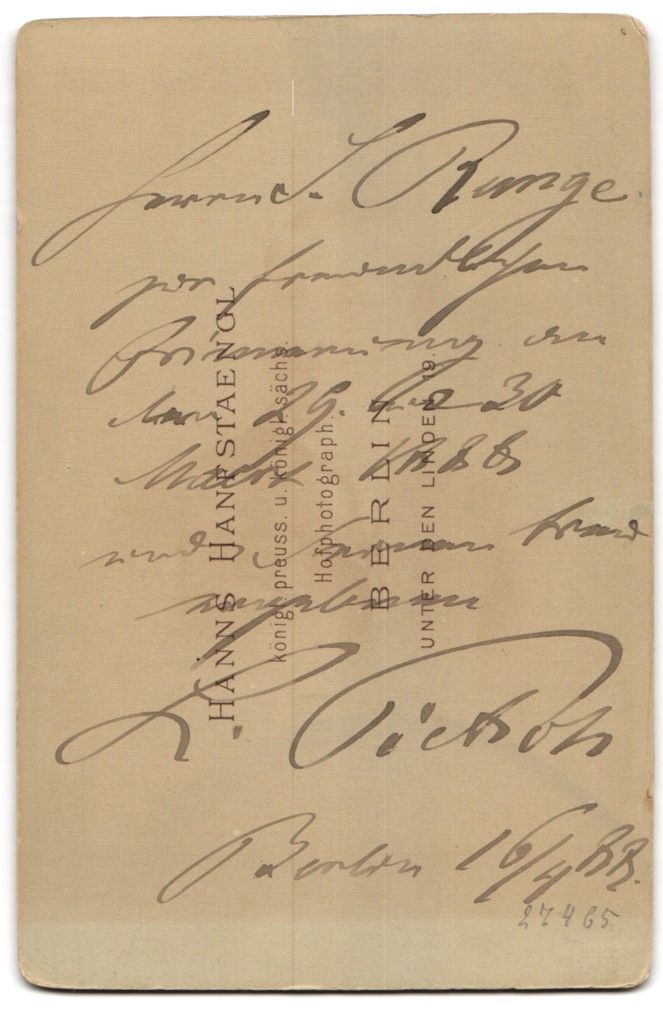 Herrn S. Runge
zur freundlichen
Erinnerung an
den 29. und 30
März 1888
und seinen treu
ergebenen
L. Pietsch
Berlin 16/4 88.
27465
HANNS HANFSTAENGL
königl. preuss. u. königl. sächs.
Hofphotograph.
BERLIN
UNTER DEN LINDEN 19.